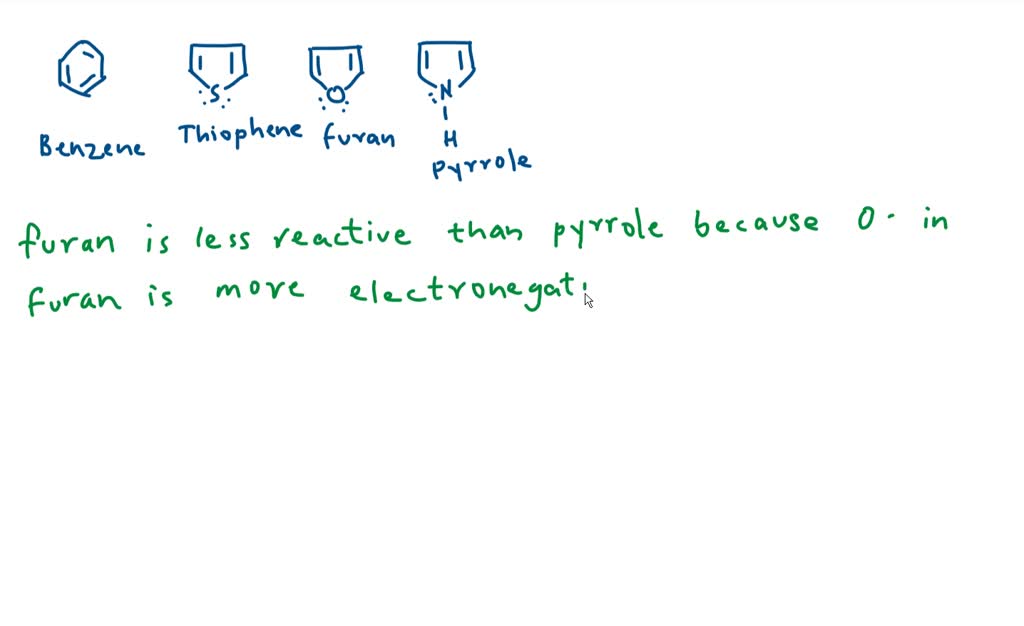 S
O
N
H
Benzene
Thiophene
furan
Pyrrole
furan is less reactive than pyrrole because O. in
furan is more electronegati